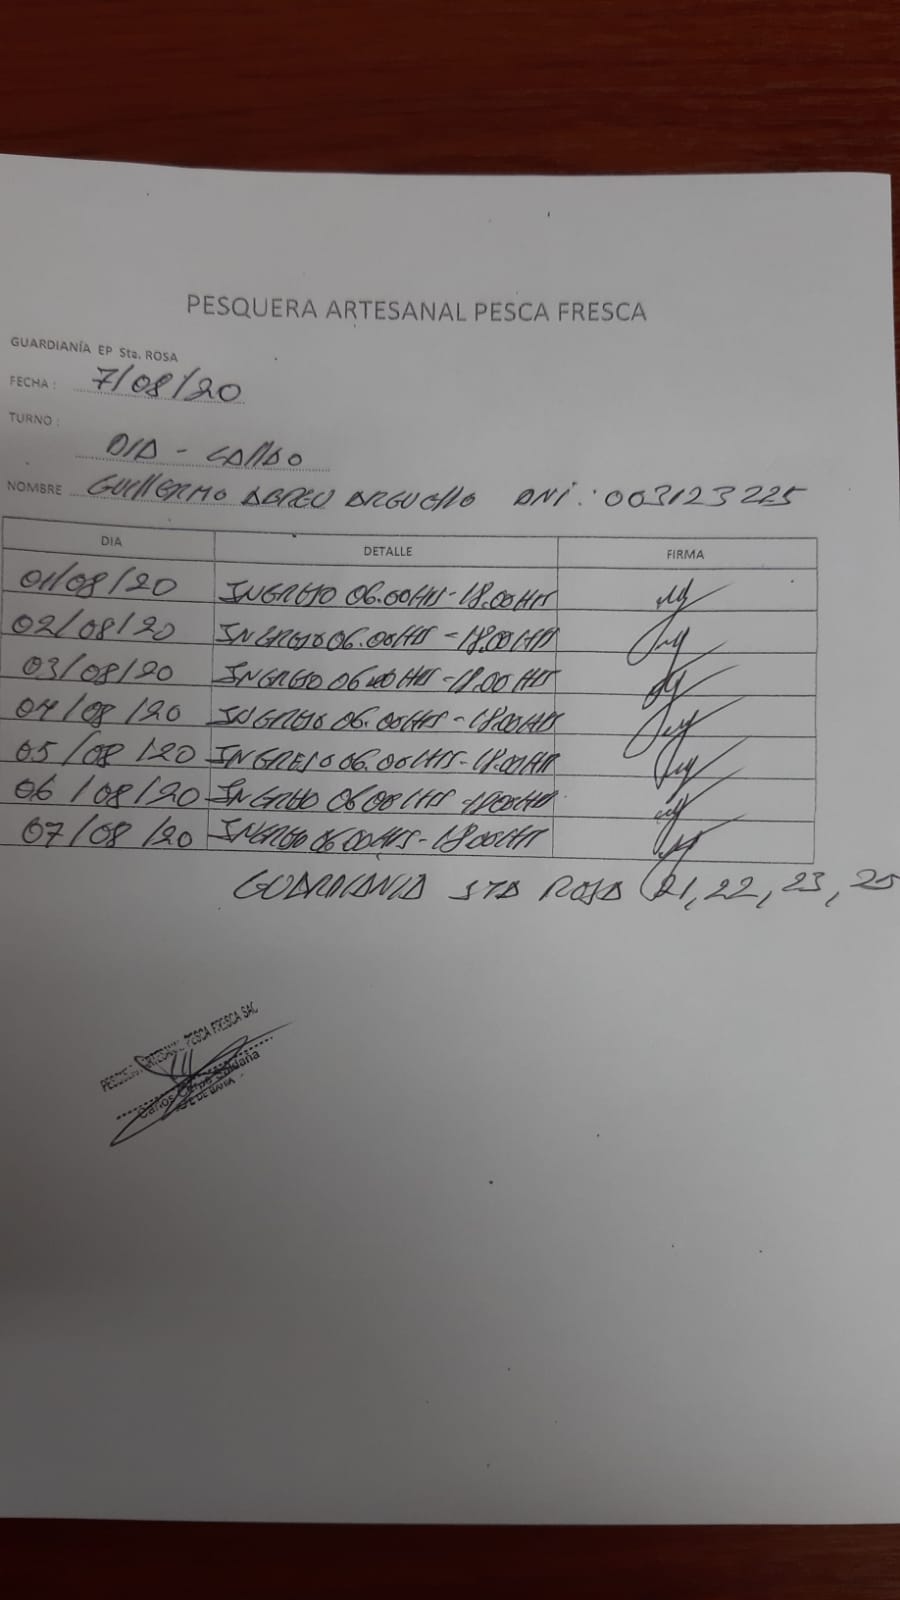 PESQUERA ARTESANAL PESCA FRESCA
GUARDIANÍA EP Sta. ROSA
FECHA: 7/08/20
TURNO:
DIA - CALLAO
NOMBRE GUILLERMO ABREU ARGUELLO DNI: 003123225
DIA DETALLE FIRMA
01/08/20 INGRESO 06.00HRS-18.00HRS
02/08/20 INGRESO 06.00HRS-18.00HRS
03/08/20 INGRESO 06.00HRS-18.00HRS
04/08/20 INGRESO 06.00HRS-18.00HRS
05/08/20 INGRESO 06.00HRS-18.00HRS
06/08/20 INGRESO 06 00HRS-1800HRS
07/08/20 INGRESO 06 00HRS-1800HRS
GUARDIANIA STA ROSA 21,22,23,25
PESQUERA ARTESANAL PESCA FRESCA SAC
Carlos Saldaña
DE BAHIA